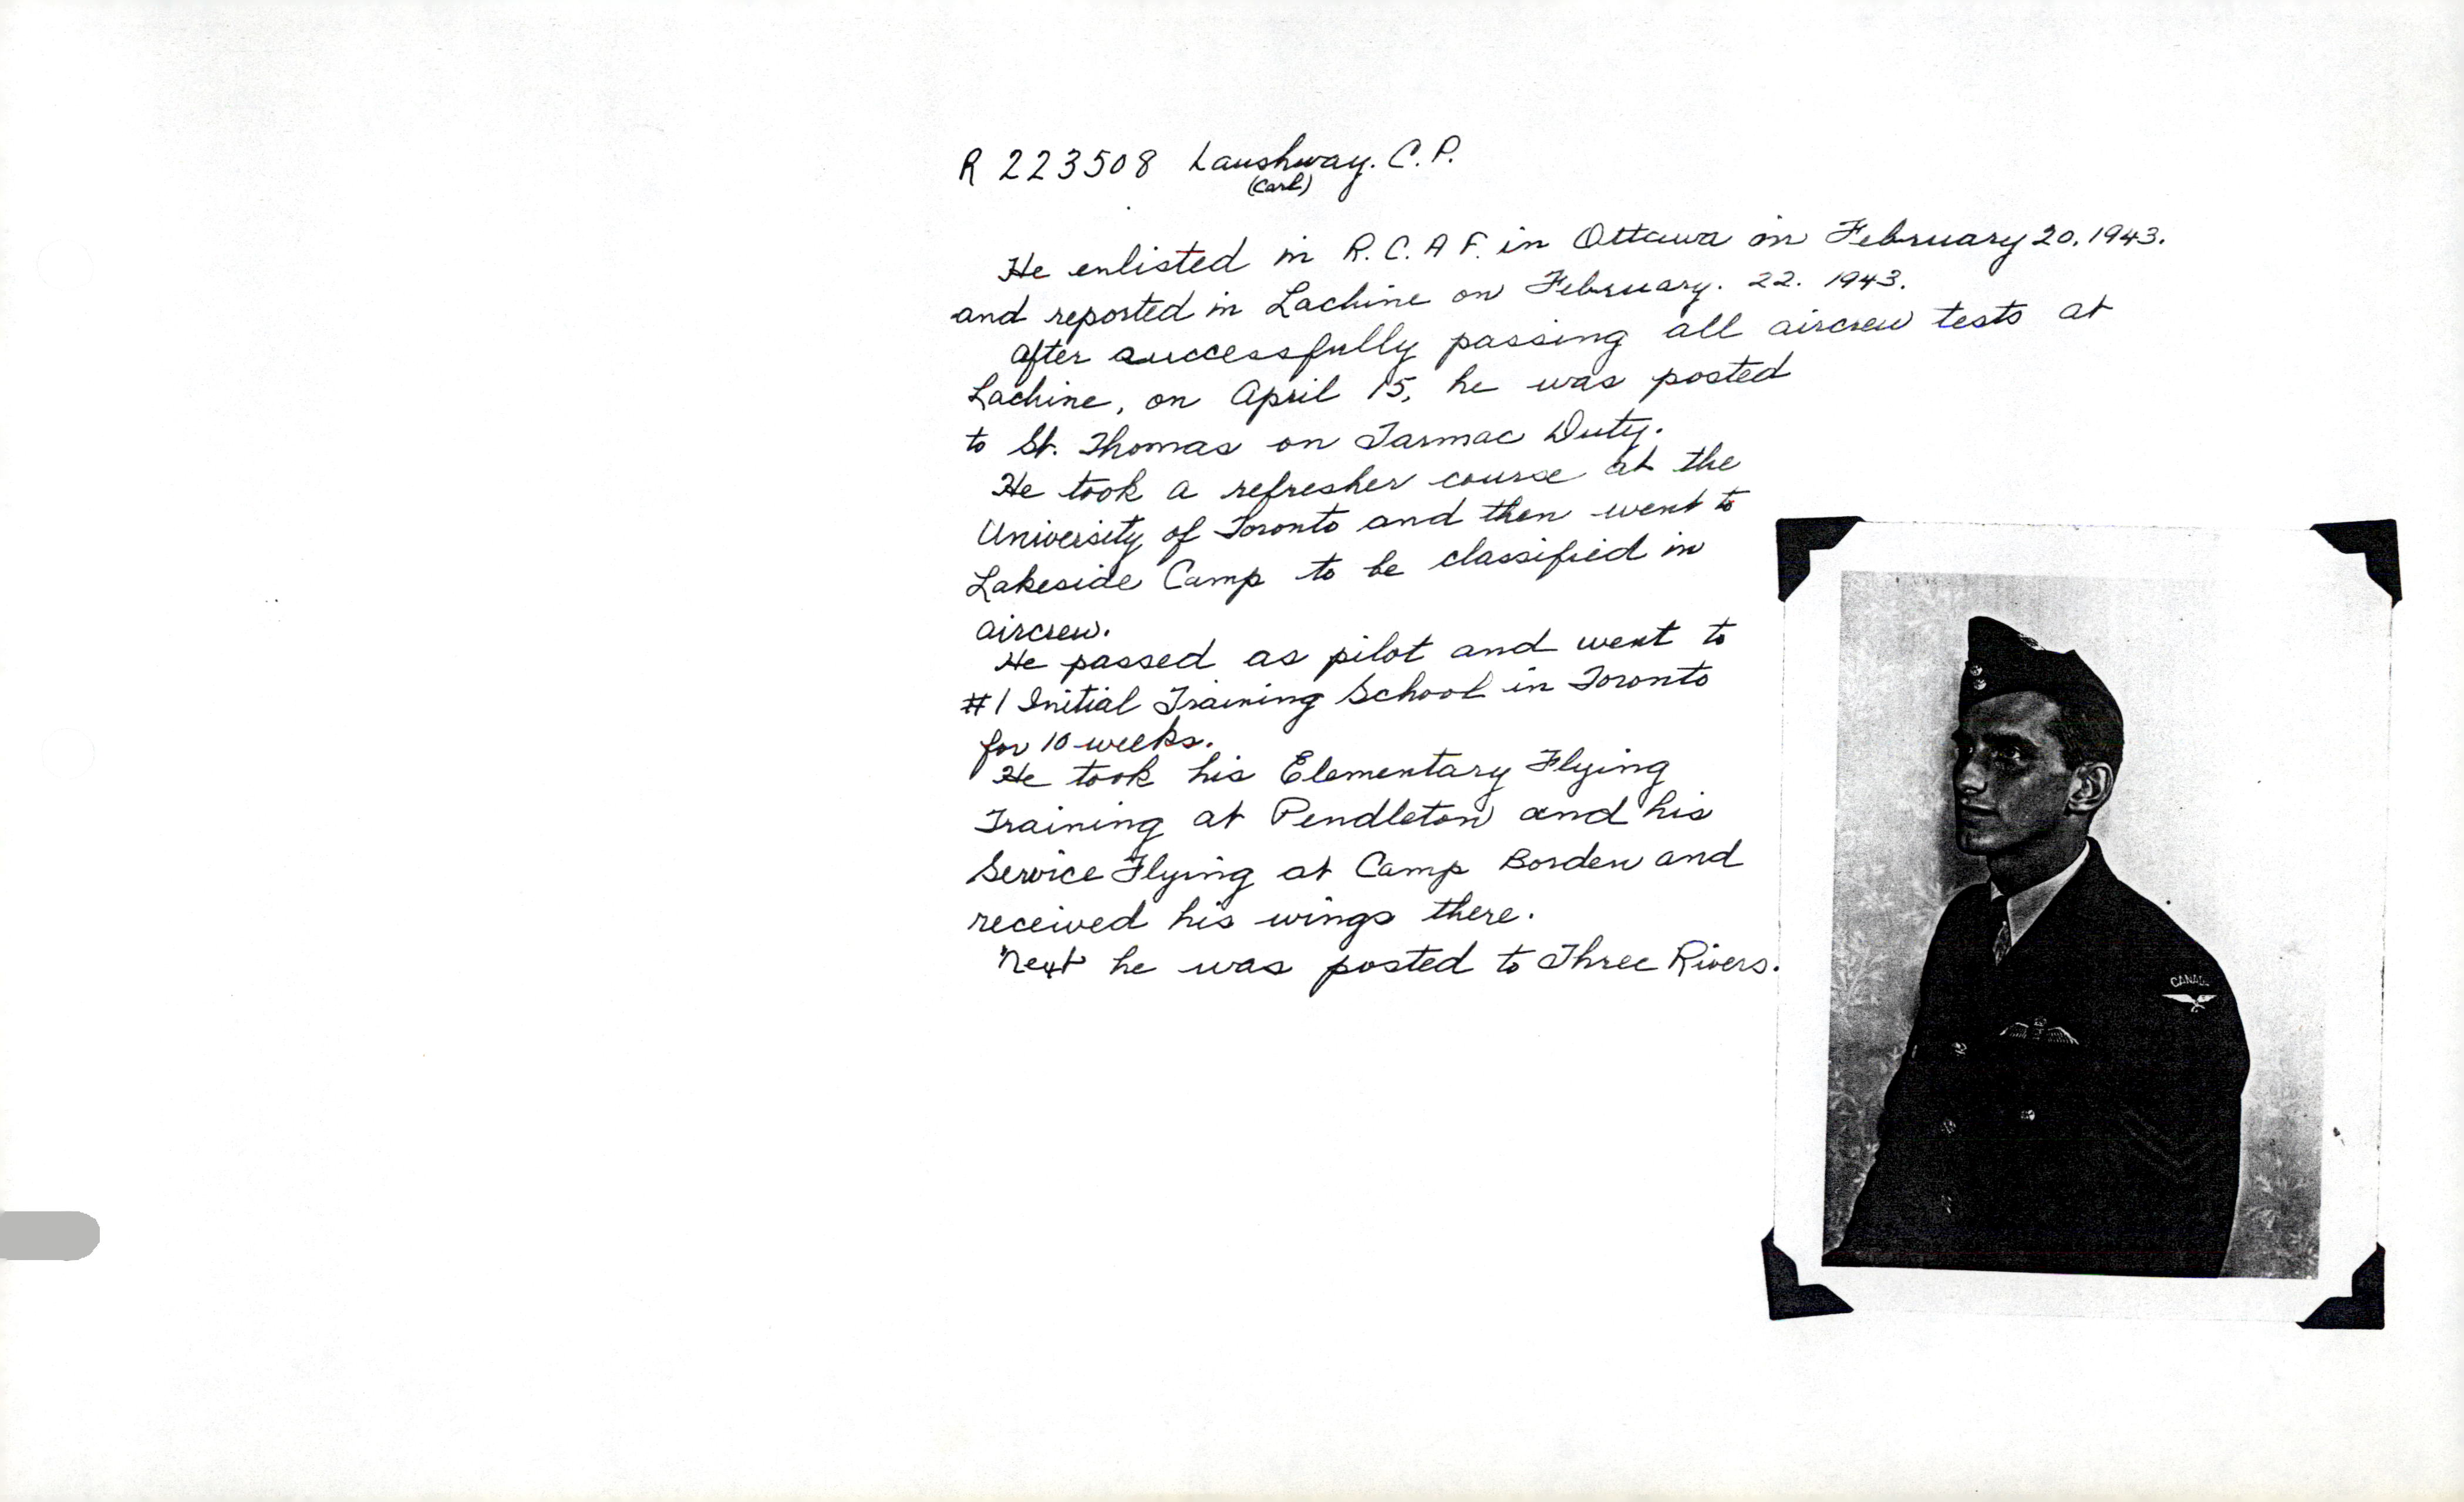 R 223508 Laushway. C. P.
(Carl)
He enlisted in R. C. A F. in Ottawa on February 20, 1943.
and reported in Lachine on February. 22. 1943.
after successfully passing all aircrew tests at
Lachine, on April 15, he was posted
to St. Thomas on Tarmac Duty.
He took a refresher course at the
University of Toronto and then went to
Lakeside Camp to be classified in
aircrew.
He passed as pilot and went to
#1 Initial Training School in Toronto
for 10 weeks.
He took his Elementary Flying
Training at Pendleton and his
Service Flying at Camp Borden and
received his wings there.
Next he was posted to Three Rivers.
CANADA